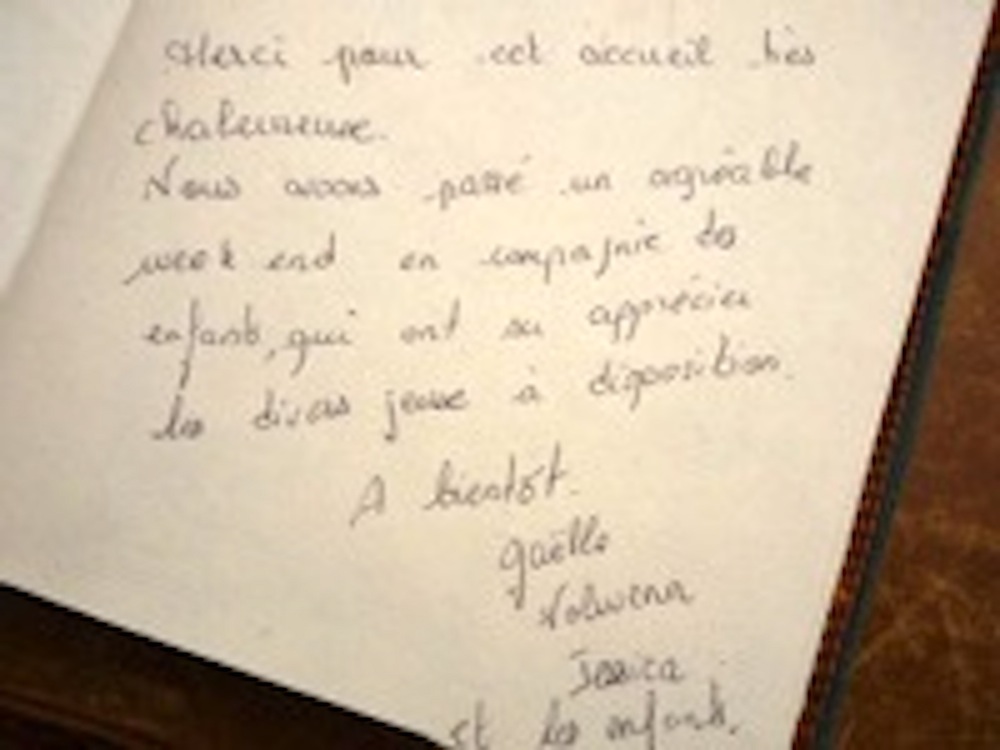 Merci pour cet accueil très
chaleureuse.
Nous avons passé un agréable
week end en compagnie des
enfants, qui ont su apprécier
les divers jeux à disposition.
A bientôt.
Gaëlle
Nolwenn
Jessica
et les enfants.